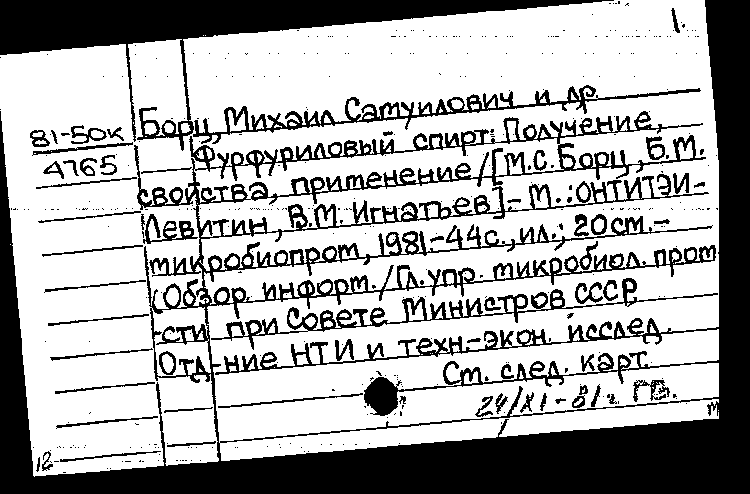 1.
81-50к Борц, Михаил Самуилович и др.
4765 Фурфуриловый спирт: Получение,
свойства, применение/[М.С. Борц, Б.М.
Левитин, В.М. Игнатьев].- М.: ОНТИТЭИ-
микробиопром, 1981.-44с., ил.; 20см.-
(Обзор. информ./Гл. упр. микробиол. пром-
сти при Совете Министров СССР.
Отд-ние НТИ и техн.-экон. исслед.
Ст. след. карт.
24/XI-81г. ГВ.
12